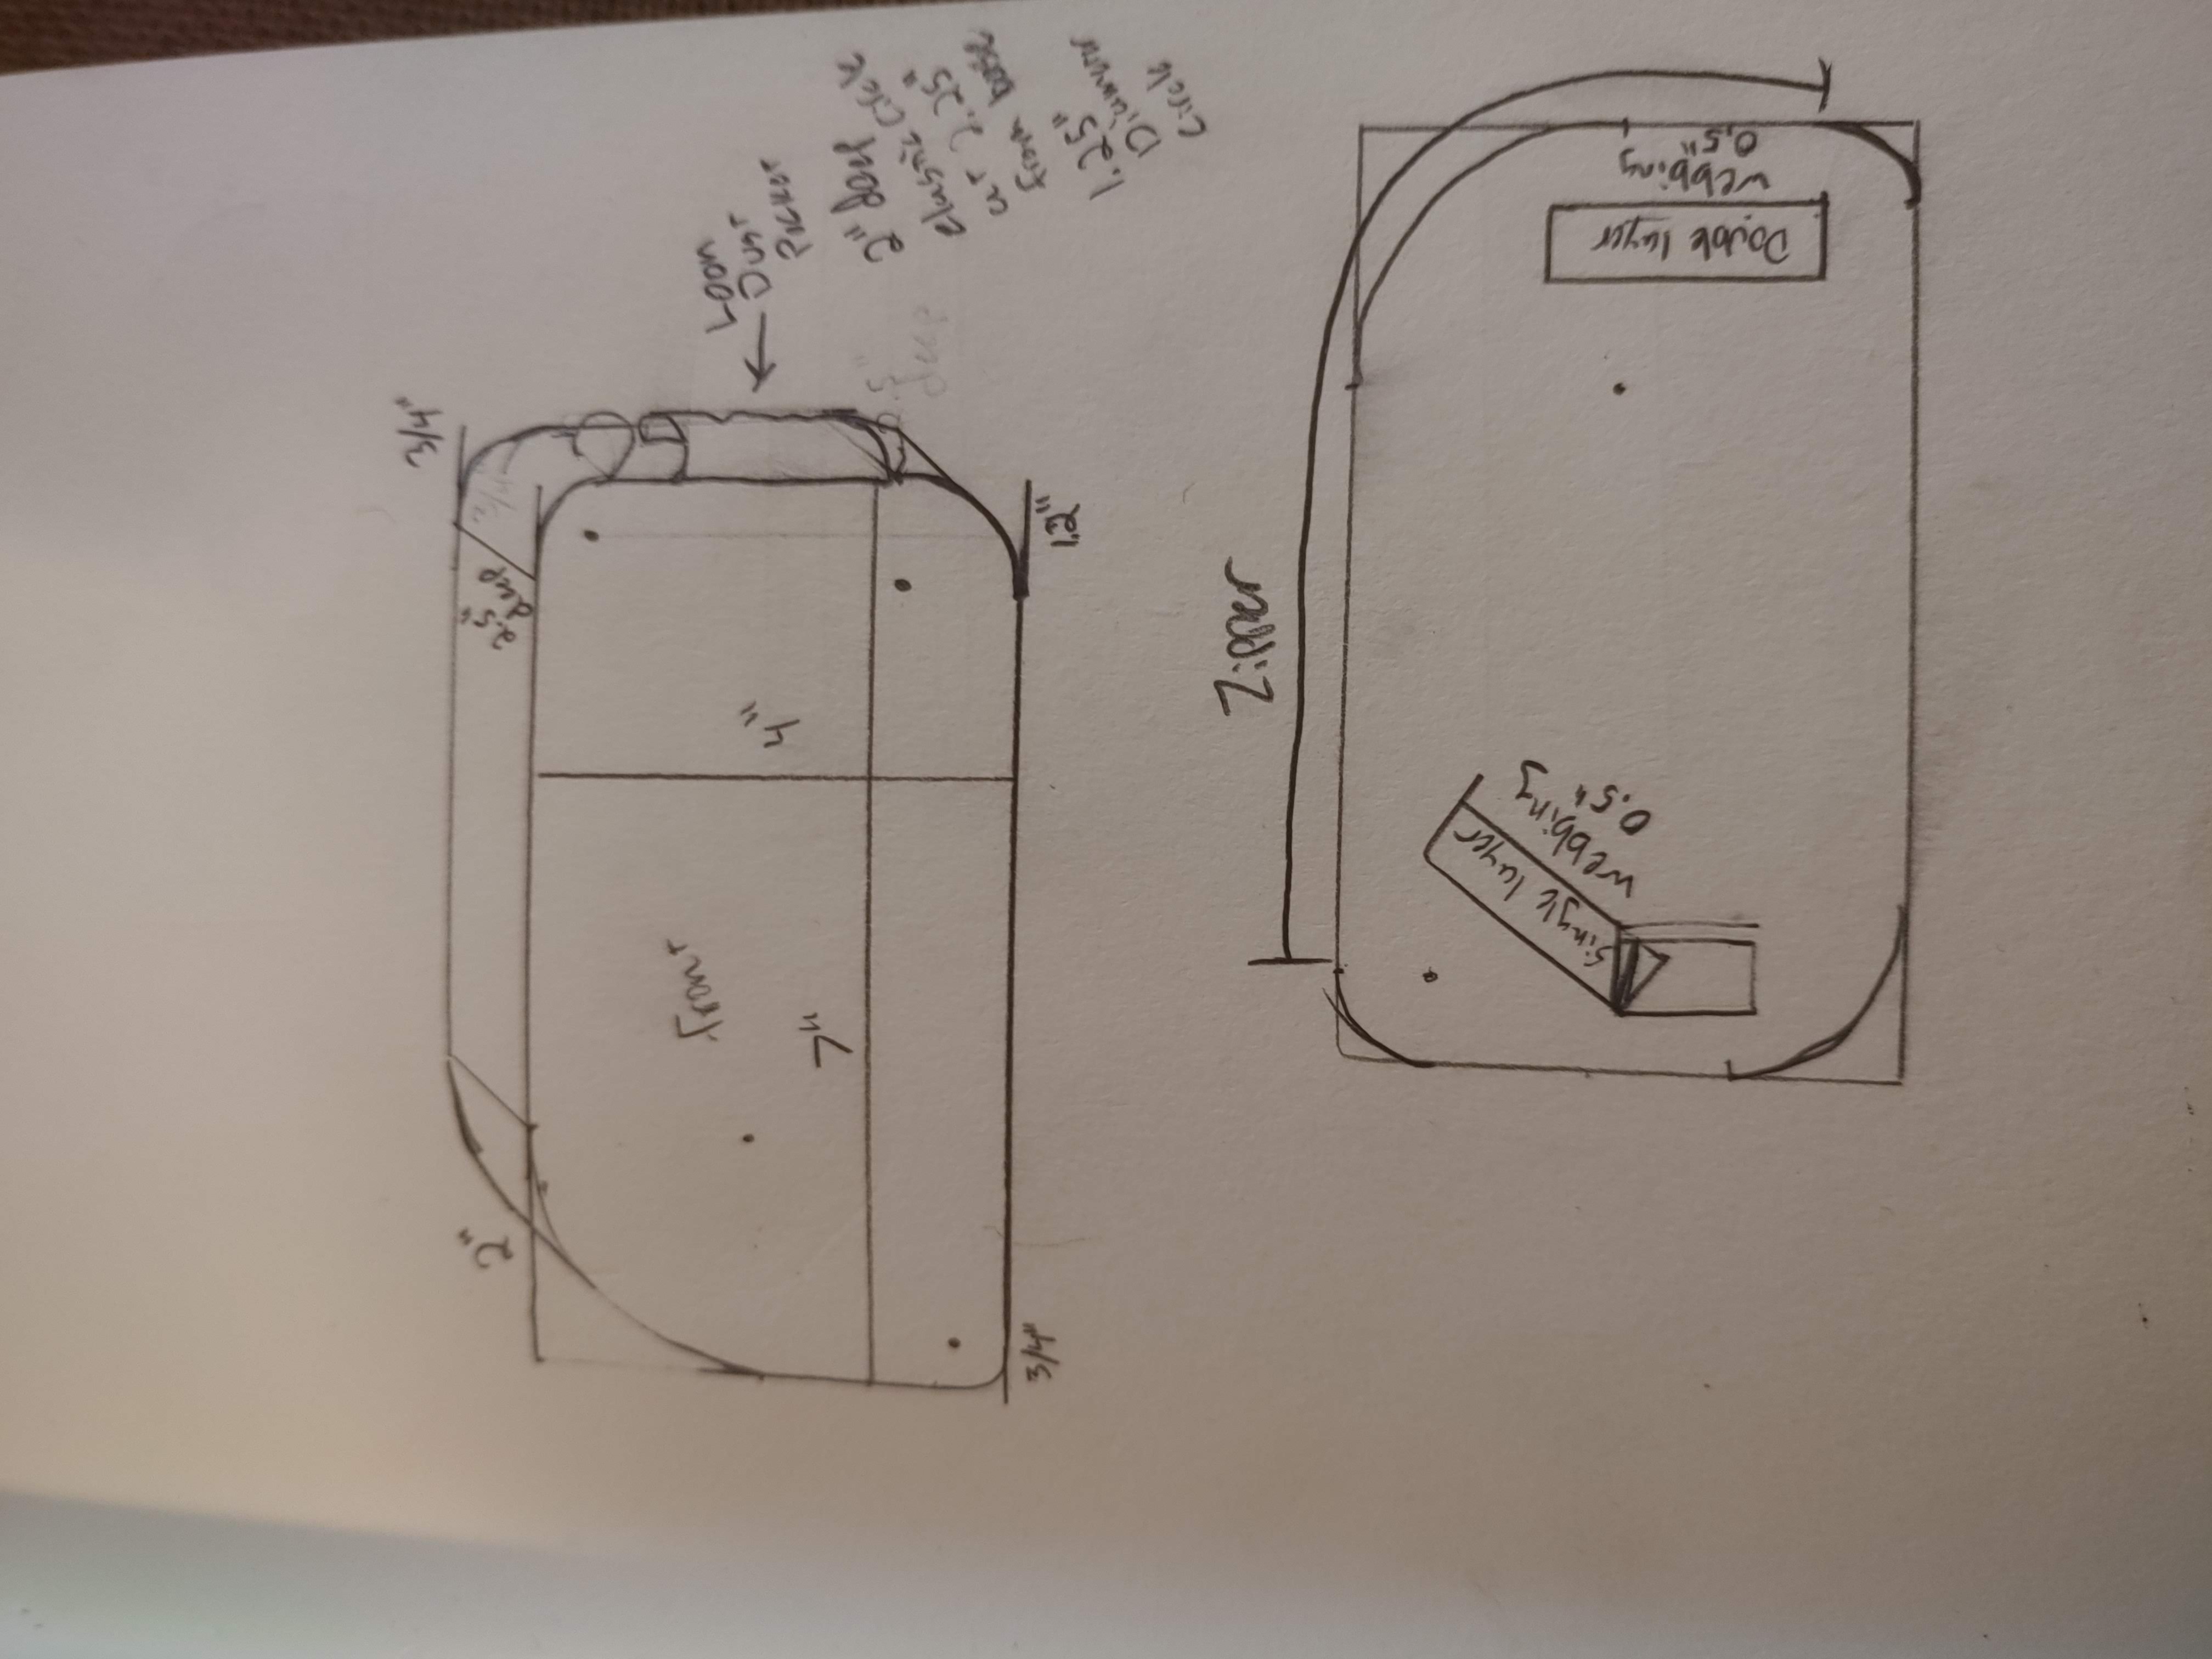 3/4"
2"
2.5"
deep
3/4"
front
4"
7"
Loon
Dust
Pocket
2" deep
elastic circle
at 2.25"
from base
1.25"
Diameter
circle
2.5"
deep
3/4"
1.2"
Zipper
Single layer
webbing
0.5"
Double layer
webbing
0.5"